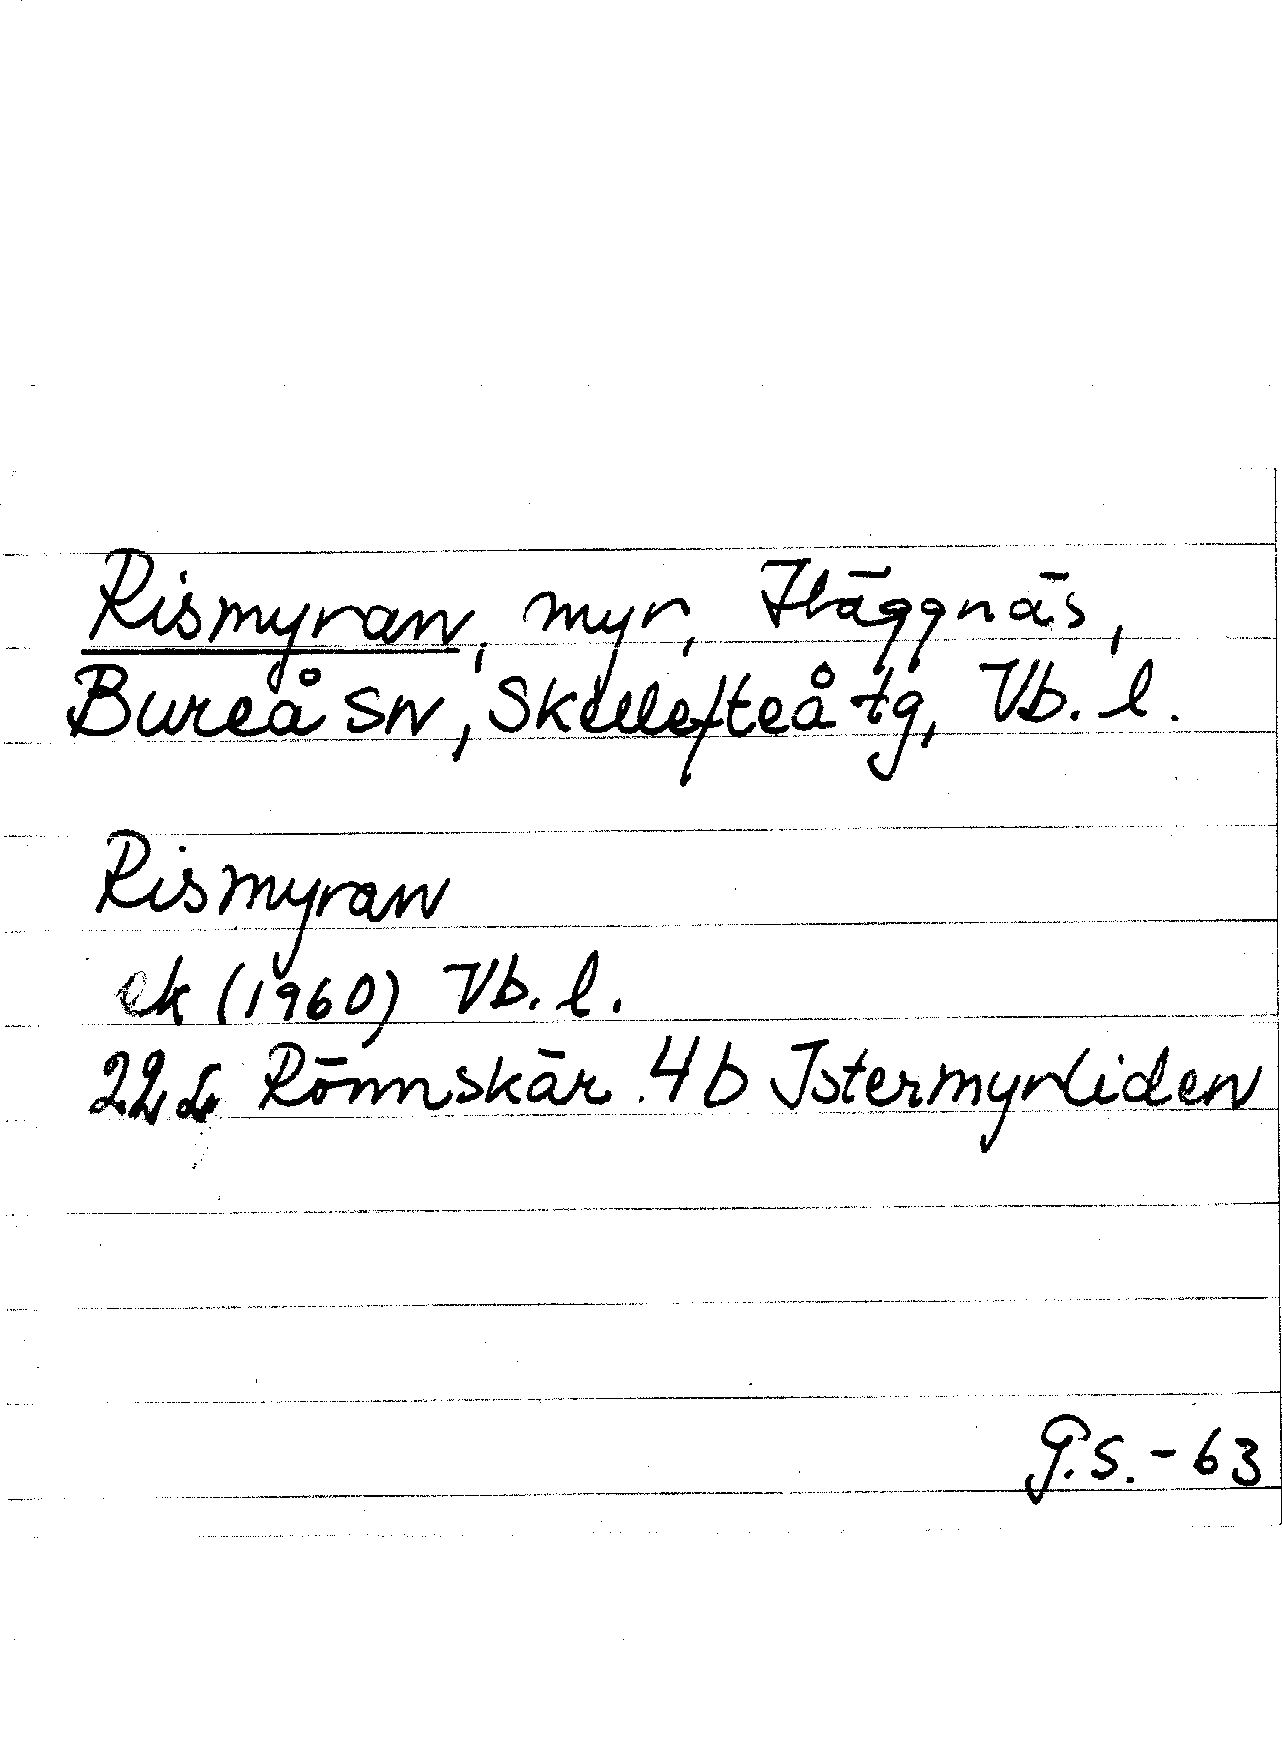 Rismyran, myr, Häggnäs,
Bureå sn, Skellefteå tg, Vb. l.
Rismyran
ek (1960) Vb. l.
22 L Rönnskär 4b Istermyrliden
G.S. - 63